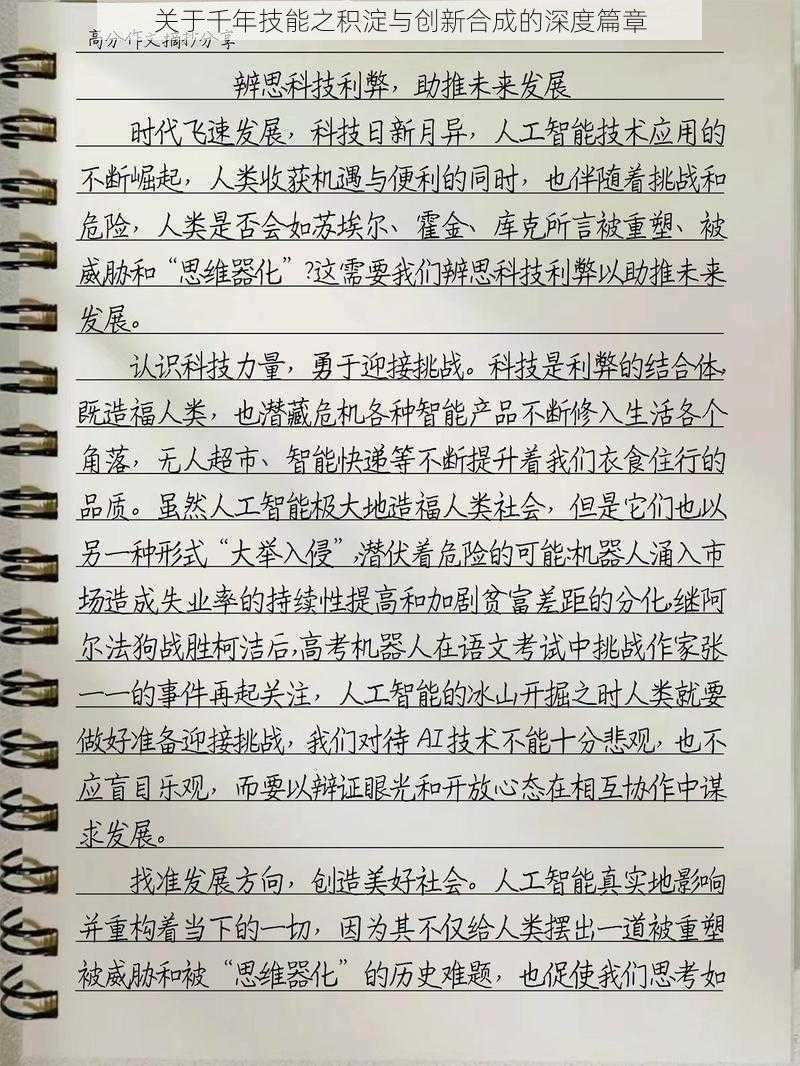 关于千年技能之积淀与创新合成的深度篇章
高分作文摘抄分享
辨思科技利弊，助推未来发展
时代飞速发展，科技日新月异，人工智能技术应用的
不断崛起，人类收获机遇与便利的同时，也伴随着挑战和
危险，人类是否会如苏埃尔、霍金、库克所言被重塑、被
威胁和“思维器化”?这需要我们辨思科技利弊以助推未来
发展。
认识科技力量，勇于迎接挑战。科技是利弊的结合体,
既造福人类，也潜藏危机各种智能产品不断修入生活各个
角落，无人超市、智能快递等不断提升着我们衣食住行的
品质。虽然人工智能极大地造福人类社会，但是它们也以
另一种形式“大举入侵”,潜伏着危险的可能:机器人涌入市
场造成失业率的持续性提高和加剧贫富差距的分化,继阿
尔法狗战胜柯洁后,高考机器人在语文考试中挑战作家张
一一的事件再起关注，人工智能的冰山开掘之时人类就要
做好准备迎接挑战，我们对待 AI 技术不能十分悲观，也不
应盲目乐观，而要以辩证眼光和开放心态在相互协作中谋
求发展。
找准发展方向，创造美好社会。人工智能真实地影响
并重构着当下的一切，因为其不仅给人类摆出一道被重塑
被威胁和被“思维器化”的历史难题，也促使我们思考如